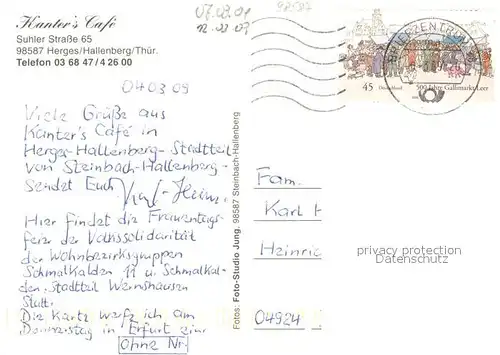 Kanter's Café
Suhler Straße 65
98587 Herges/Hallenberg/Thür.
Telefon 03 68 47/4 26 00
04 03 09
Viele Grüße aus
Kanter's Café in
Herges-Hallenberg-Stadtteil
von Steinbach-Hallenberg-
Sendet Euch
Hier findet die Frauentags-
feier der Volkssolidarität
der Wohnbezirksgruppen
Schmalkalden 11 u. Schmalkal-
den, Stadtteil Wernshausen
Statt.
Die Karte werfe ich am
Donnerstag in Erfurt ein
Ohne Nr.
Fotos: Foto-Studio Jung, 98587 Steinbach-Hallenberg
BRIEFZENTRUM
45 Deutschland 500 Jahre Gallimarkt Leer
Fam.
Karl H
Heinric
04924
privacy protection
Datenschutz